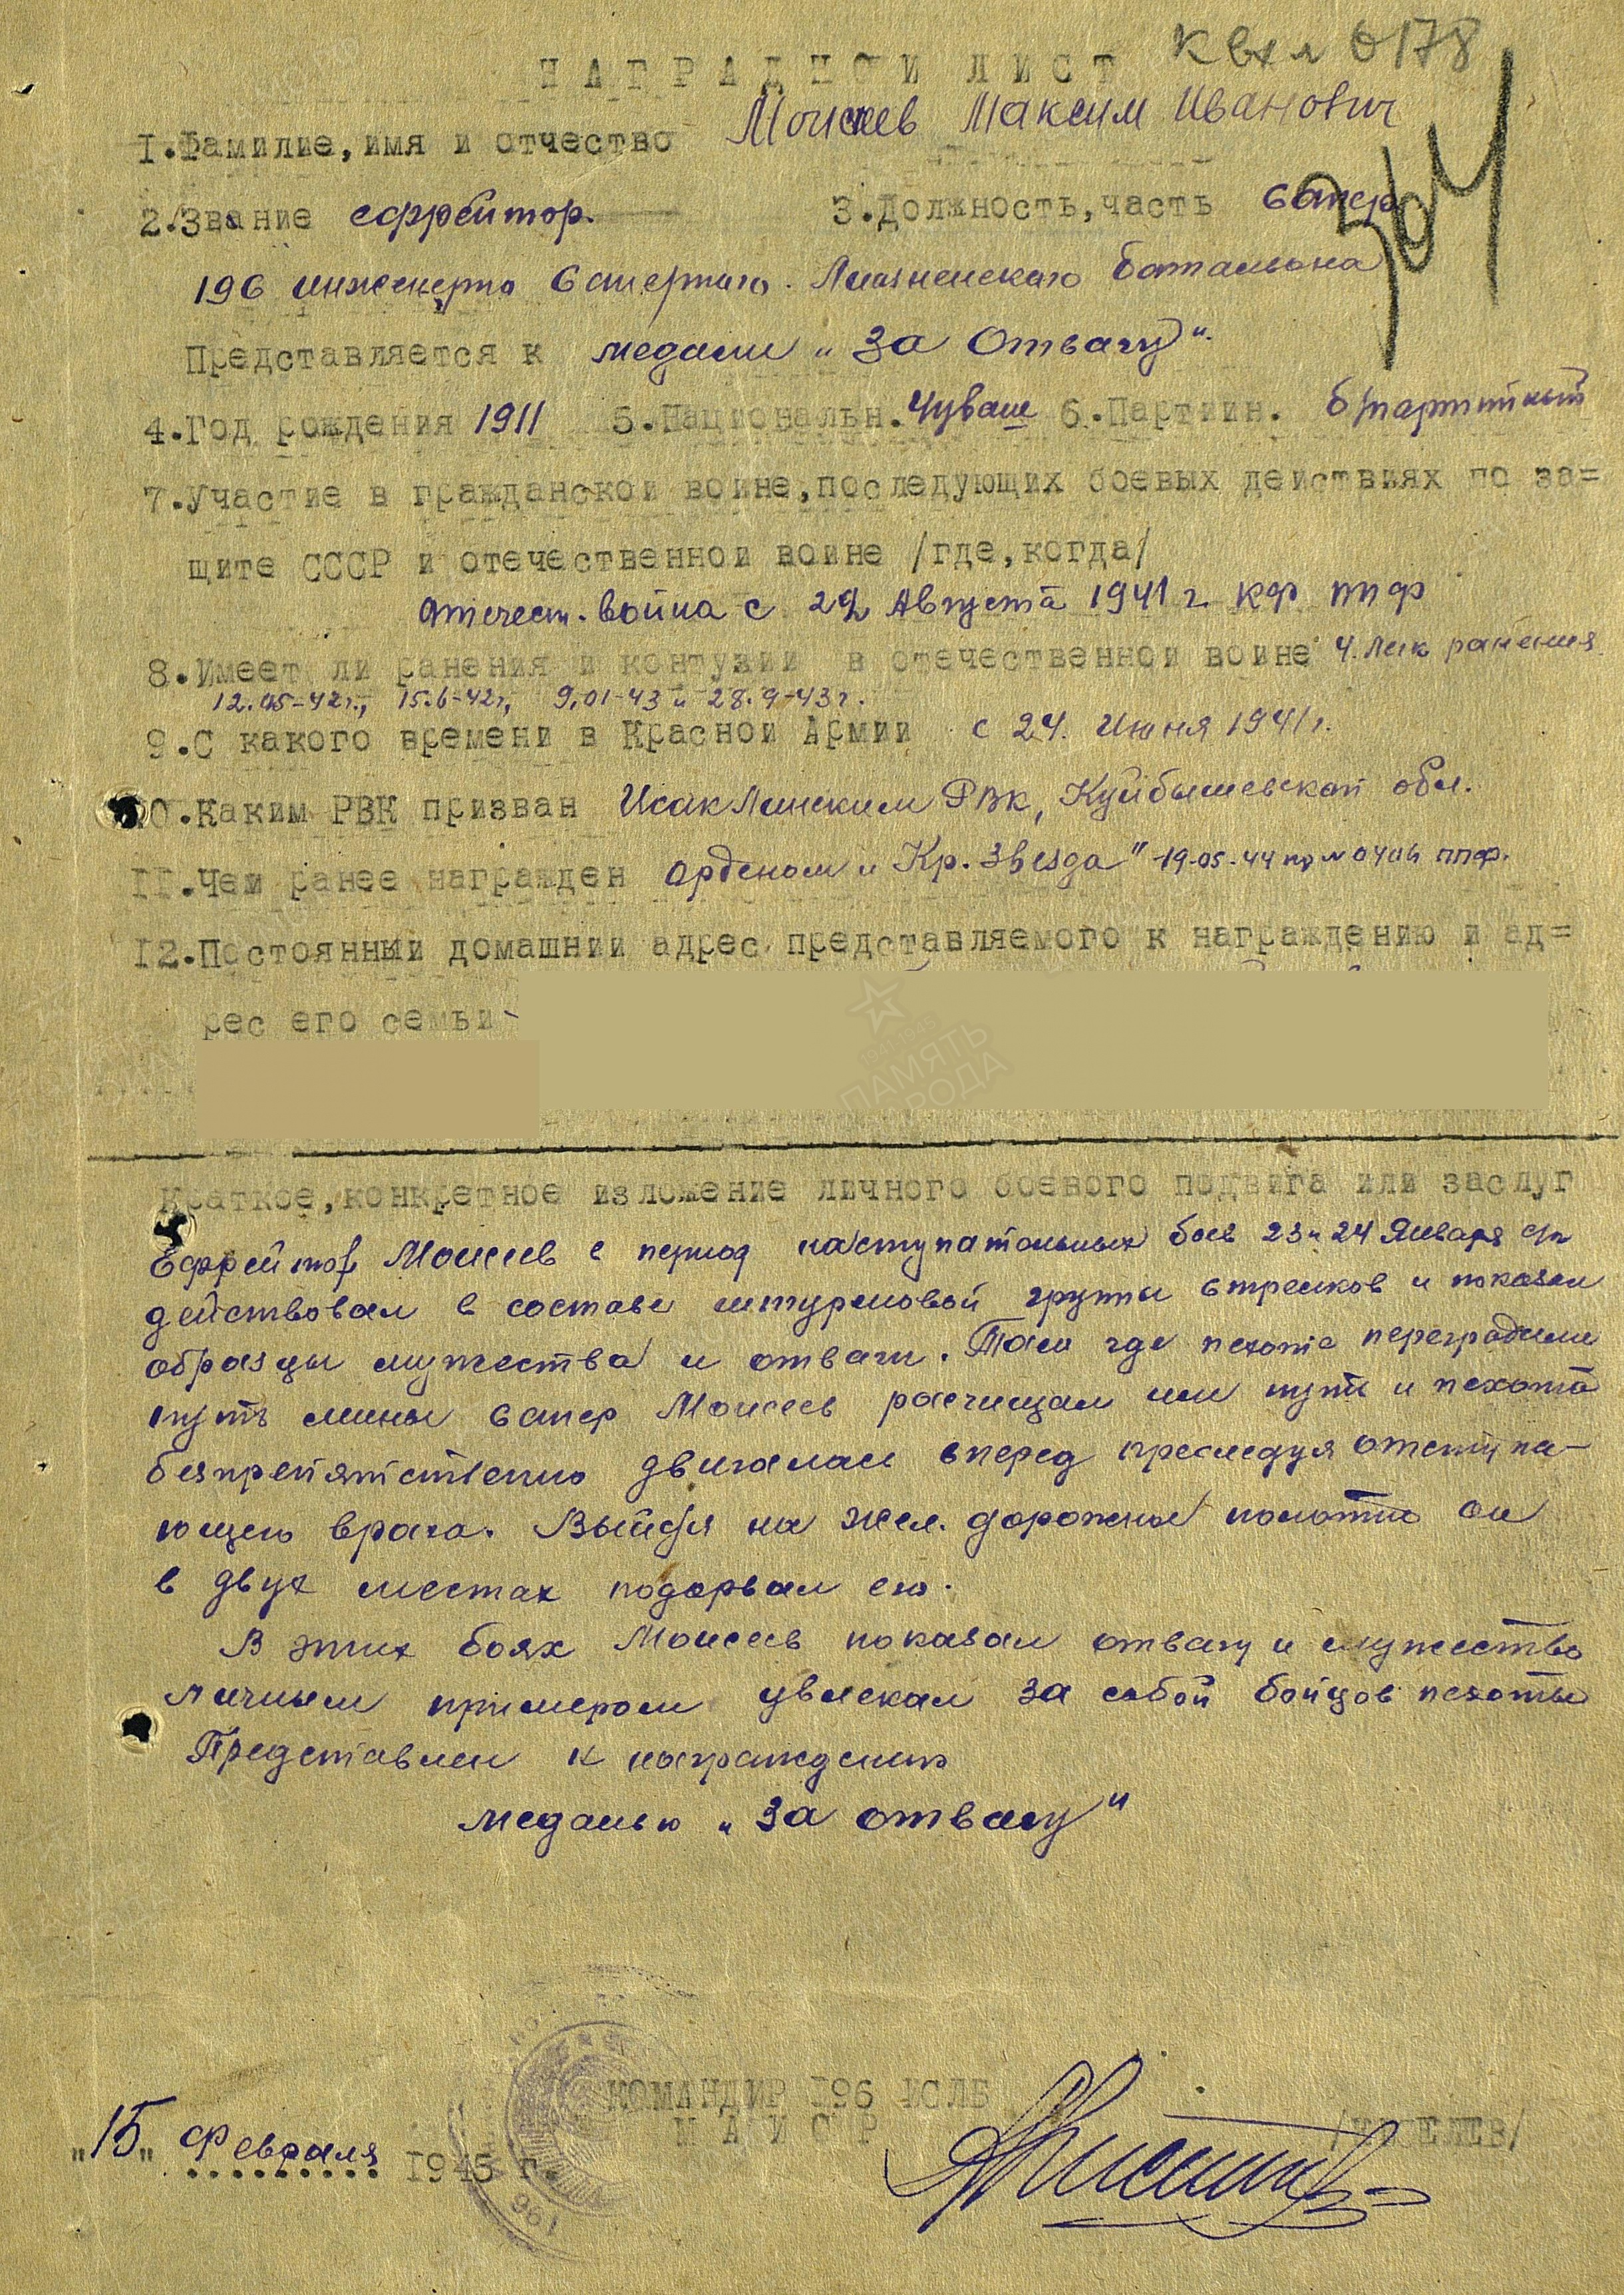 К вх л 0178
НАГРАДНОЙ ЛИСТ
1.Фамилие,имя и отчество Моисеев Максим Иванович
2.Звание ефрейтор. 3.Должность,часть сапер
196 инженерно саперного Лиозненского батальона
Представляется к медали „За Отвагу"
4.Год рождения 1911 5.Национальн. Чуваш 6.Партийн. б/партийный
7.Участие в гражданской войне,последующих боевых действиях по за=
щите СССР и отечественной войне /где,когда/
Отечест. война с Августа 1941 г. КФ ППФ
8.Имеет ли ранения и контузии в отечественной войне 4. лек ранения
12.05-42г., 15.6-42г, 9,01-43 и 28.9-43г.
9.С какого времени в Красной Армии с 24. Июня 1941г.
10.Каким РВК призван Исаклинским РВК, Куйбышевской обл.
11.Чем ранее награжден орденом „Кр. Звезда" 19-05-44 пр № 0406 ппф.
12.Постоянный домашний адрес представляемого к награждению и ад=
рес его семьи
ПАМЯТЬ
НАРОДА
Краткое,конкретное изложение личного боевого подвига или заслуг
Ефрейтор Моисеев в период наступательных боев 23 и 24 Января с/г
действовал в составе штурмовой группы стрелков и показал
образцы мужества и отваги. Там где пехоте переградили
путь мины сапер Моисеев расчищал им путь и пехота
безпрепятственно двигалась вперед преследуя отступа-
ющего врага. Выйдя на жел. дорожное полотно он
в двух местах подорвал его.
В этих боях Моисеев показал отвагу и мужество
личным примером увлекал за собой бойцов пехоты
Представлен к награждению
медалью „За отвагу"
КОМАНДИР 196 ИСЛБ
МАЙОР /КИСЕЛЕВ/
„15" Февраля 1945 г.
196